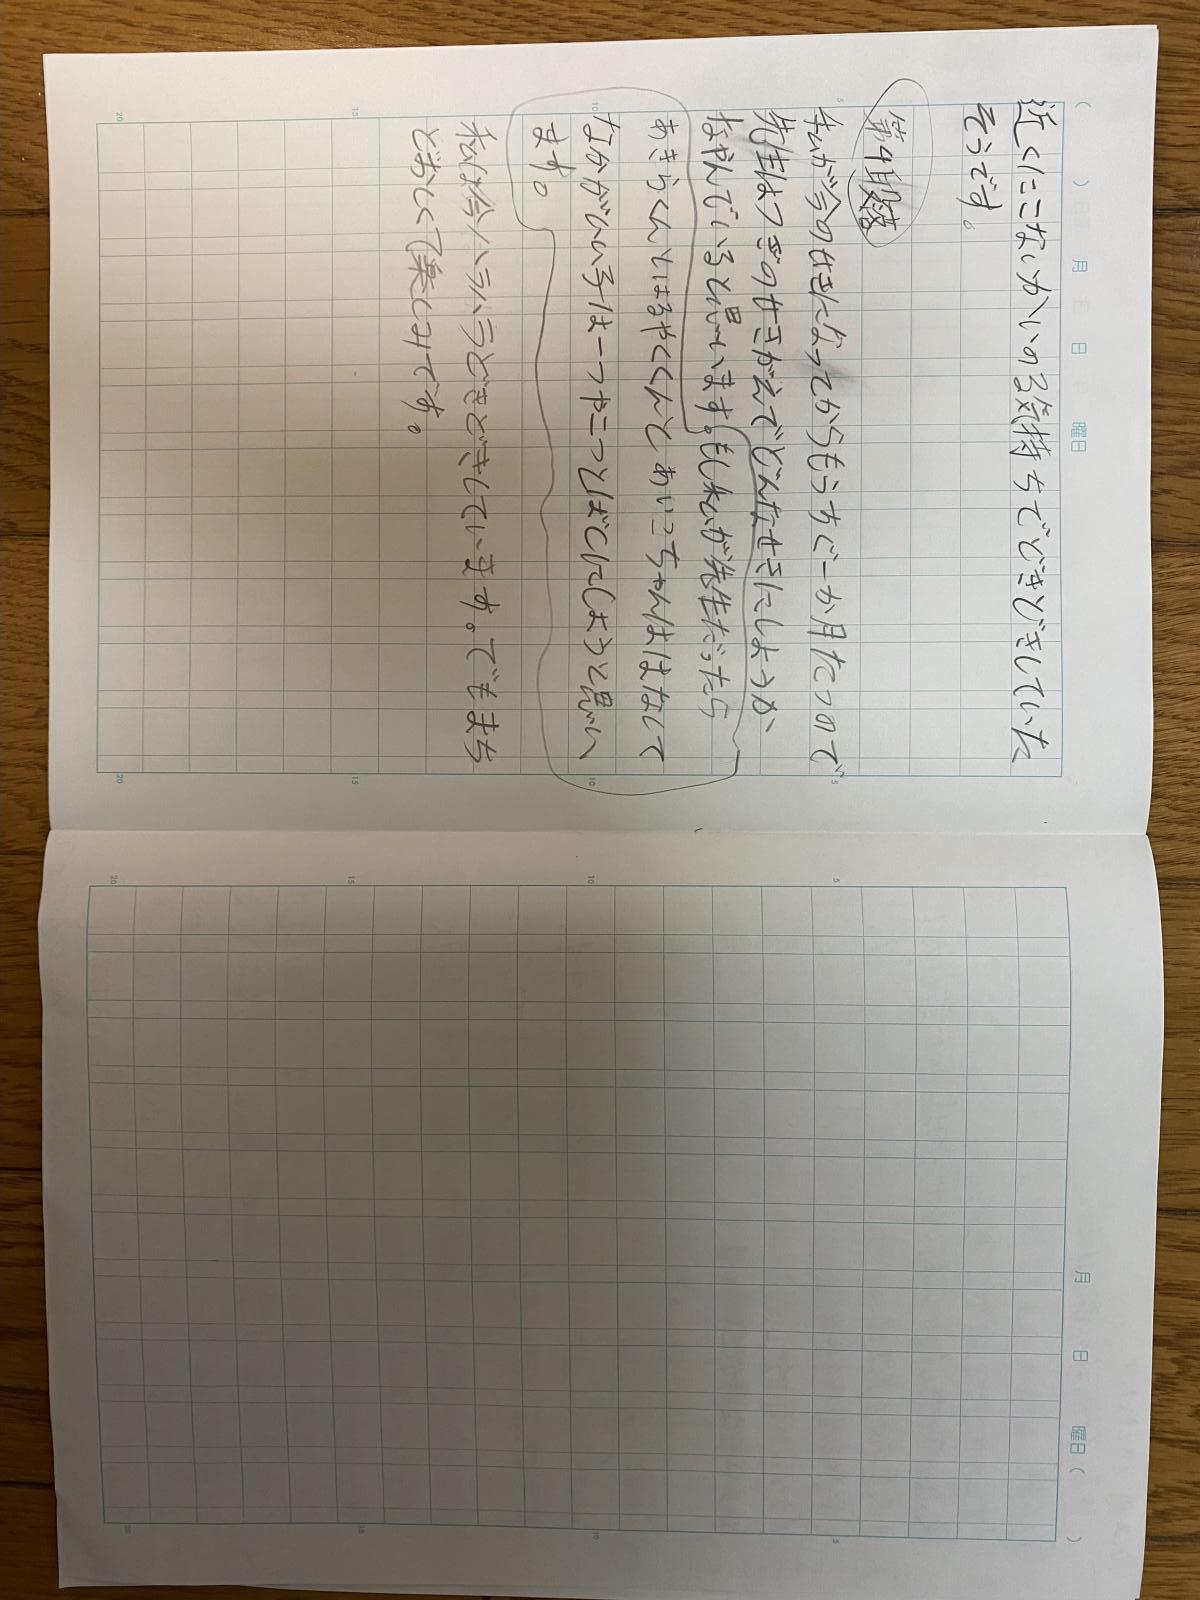 ( ) 月 日 曜日
近くにこないかいの強気持ちでどきどきしていた
そうです。
第4段落
私が今のせきになってからもうちぐ一か月たつので
先生はつぎのせきがえでどんなせきにしようか
なやんでいると思います。もし私が先生だったら
あきらくんとはるやくんとあいこちゃんははなして
なかがいい子は一つや二つとばしにしようと思い
ます。
私は今ハラハラどきどきしています。でもまち
どおしくて楽しみです。
5 10 15 20
5 10 15 20
月 日 曜日 ( )
5 10 15 20
5 10 15 20